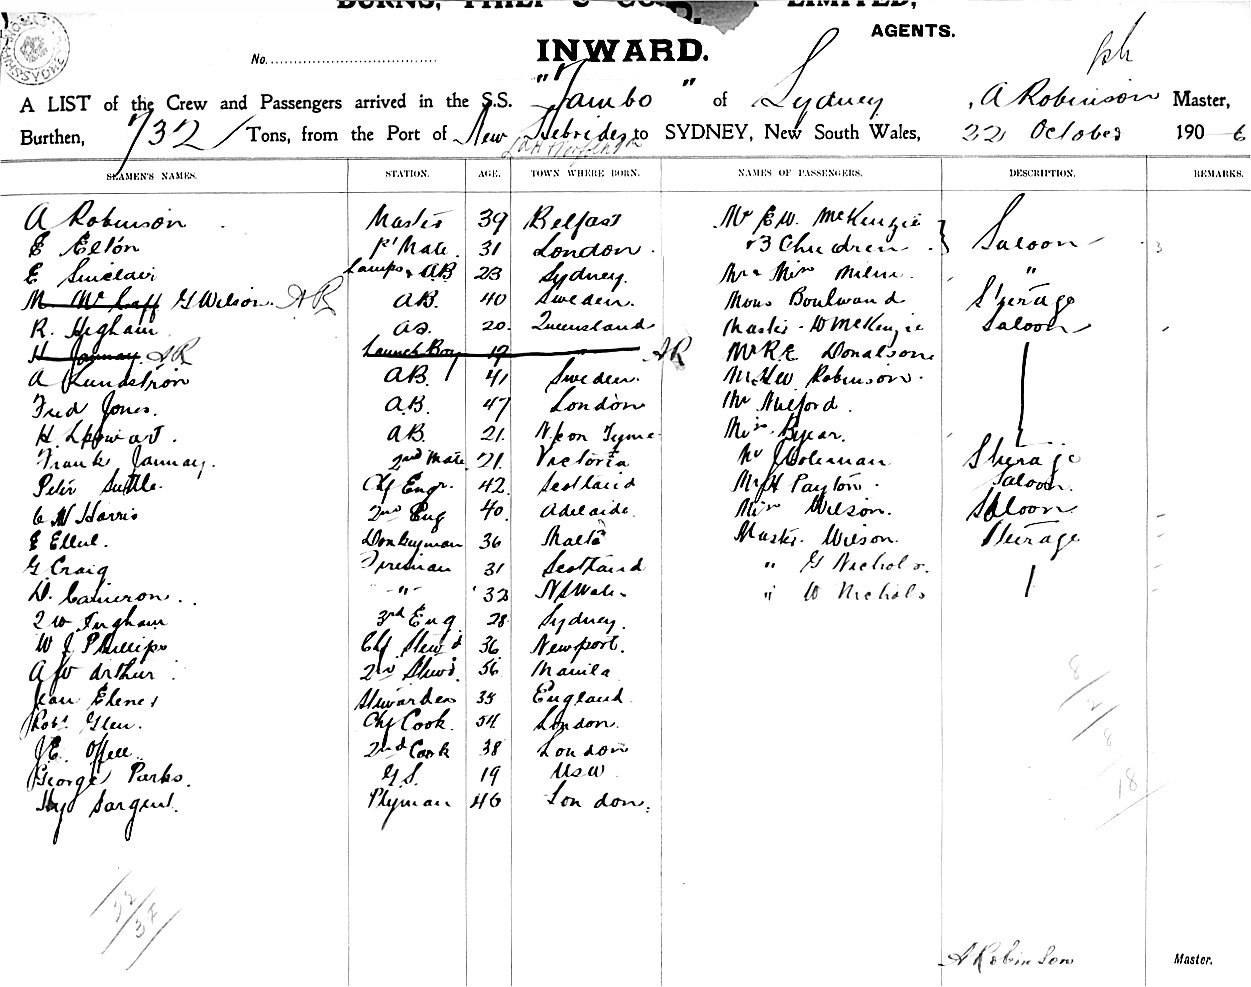 BURNS, PHILP & CO. LIMITED,
AGENTS.
INWARD.
No.
A LIST of the Crew and Passengers arrived in the S.S. "Tambo" of Sydney, A Robinson Master,
Burthen, 732 Tons, from the Port of New Hebrides to SYDNEY, New South Wales, 22 October 1906
SEAMEN'S NAMES. STATION. AGE. TOWN WHERE BORN. NAMES OF PASSENGERS. DESCRIPTION. REMARKS.
A Robinson Master 39 Belfast Mr E W. McKenzie
E Elton 1st Mate 31 London & 3 Children Saloon 3
E Sinclair Lamps & AB 23 Sydney. Mr & Miss Milne "
G Wilson. AR AB. 40 Sweden. Mons Boulward Sterage
R. Higham AB. 20. Queensland Master W McKenzie Saloon
H Jannay AR Launch Boy 19 AR Mr R E Donalson
A Lundstron AB. 41 Sweden. Mr H W Robinson.
Fred Jones. AB. 47 London Mr Milford.
H. AB. 21. N. on Tyne Miss
Frank Jannay. 2nd Mate 21. Victoria Mr J Coleman Sterage
Peter Suttle. Chf Engr. 42. Scotland Mr H Payton. Saloon.
C W Harris 2nd Eng 40. Adelaide. Miss Wilson. Saloon
E Ellul. Donkeyman 36 Malta Master Wilson. Sterage
G Craig Fireman 31 Scotland " G Nichols.
D. Cameron. " 32 N S Wales " W Nichols
Ingham 3rd Eng 28 Sydney.
W J Phillips Chf Stew'd 36 Newport.
A W Arthur. 2nd Stew'd. 56 Manila
Jean Ebenes Stewardess 35 England.
Robt Glen. Chf Cook. 54 London.
J E. Offell. 2nd Cook 38 London
George Parks. G S. 19 NSW
Hy Sargent. Ptyman 46 London.
8
2
8
18
32
32
A Robinson Master.